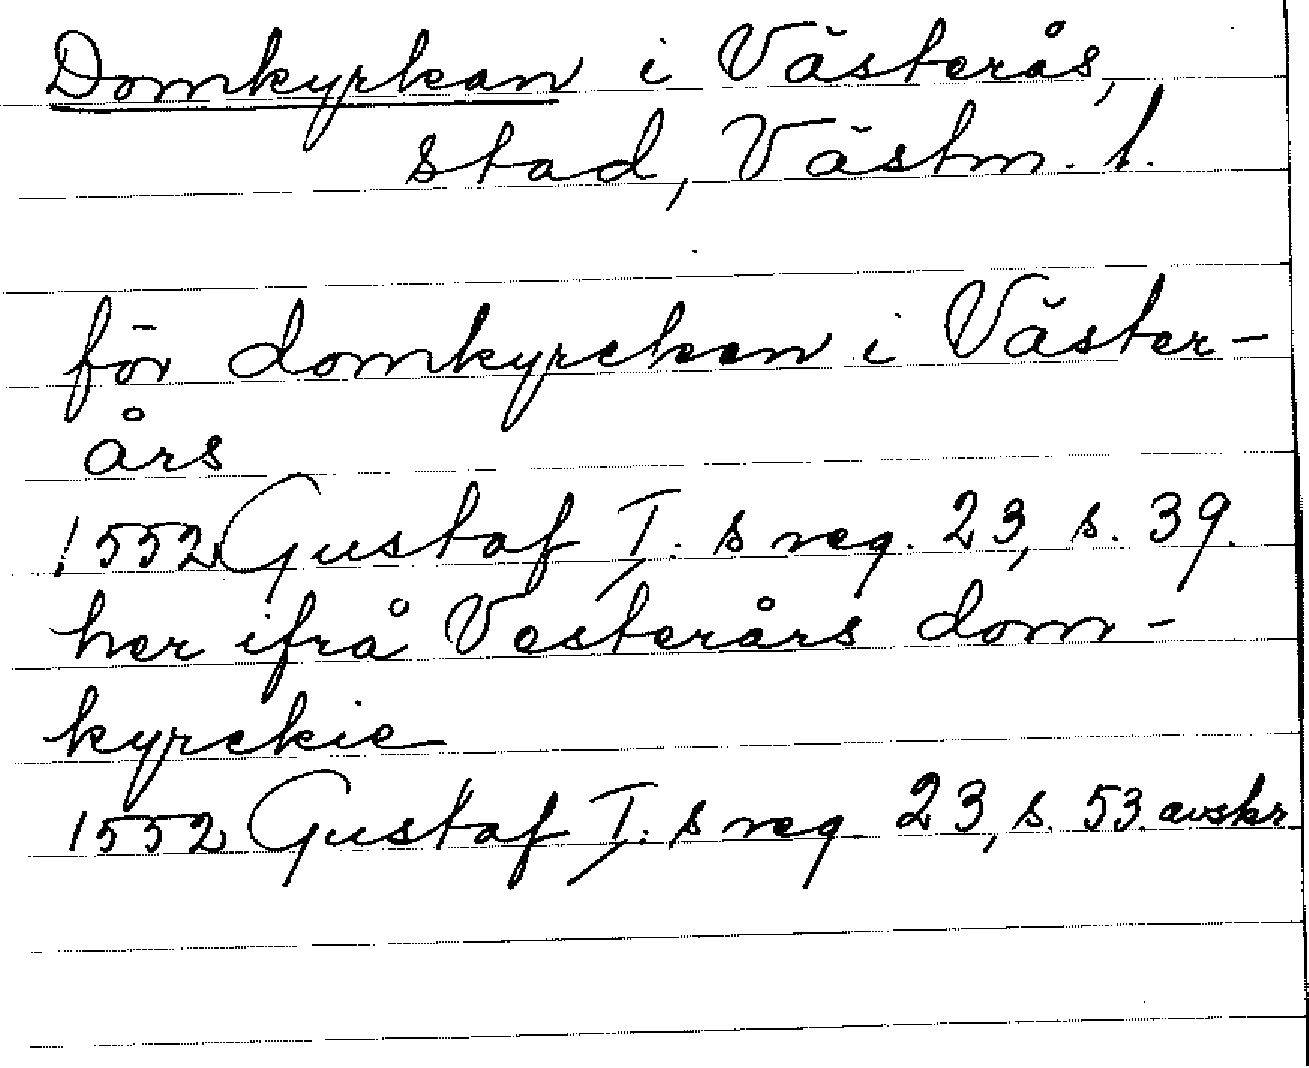 Domkyrkan i Västerås,
stad, Västm. l.
för domkyrckan i Väster-
års
1552 Gustaf I. s reg. 23, s. 39.
her ifrå Vesterårs dom-
kyrckie
1552 Gustaf I. s reg. 23, s. 53. avskr